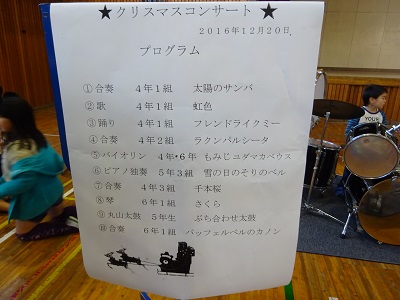 ★クリスマスコンサート★
2016年12月20日
プログラム
①合奏 4年1組 太陽のサンバ
②歌 4年1組 虹色
③踊り 4年1組 フレンドライクミー
④合奏 4年2組 ラクンパルシータ
⑤バイオリン 4年・6年 もみじユダマカベウス
⑥ピアノ独奏 5年3組 雪の日のそりのベル
⑦合奏 4年3組 千本桜
⑧琴 6年1組 さくら
⑨丸山太鼓 5年生 ぶち合わせ太鼓
⑩合奏 6年1組 パッフェルベルのカノン